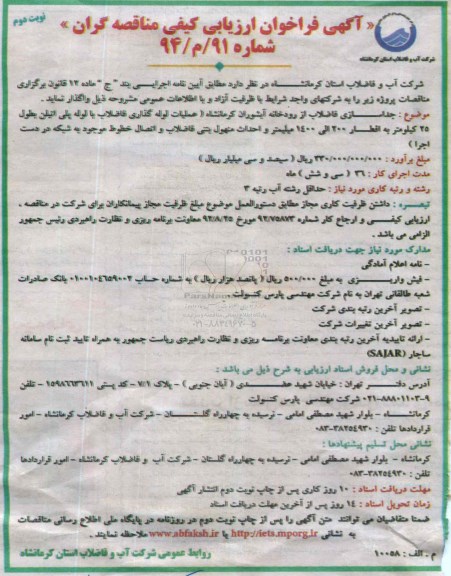 نوبت دوم
« آگهی فراخوان ارزیابی کیفی مناقصه گران »
شماره ۹۱/م/۹۴
شرکت آب و فاضلاب استان کرمانشاه
شرکت آب و فاضلاب استان کرمانشاه در نظر دارد مطابق آیین نامه اجرایی بند " ج " ماده ۱۲ قانون برگزاری
مناقصات پروژه زیر را به شرکتهای واجد شرایط با ظرفیت آزاد و با اطلاعات عمومی مشروحه ذیل واگذار نماید .
موضوع : جداسازی فاضلاب از رودخانه آبشوران کرمانشاه ( عملیات لوله گذاری فاضلاب با لوله پلی اتیلن بطول
۲۵ کیلومتر به اقطار ۲۰۰ الی ۱۴۰۰ میلیمتر و احداث منهول بتنی فاضلاب و اتصال خطوط موجود به شبکه در دست
اجرا )
مبلغ برآورد : ۳۳۰/۰۰۰/۰۰۰/۰۰۰ ریال ( سیصد و سی میلیار ریال )
مدت اجرای کار : ۳۶ ( سی و شش ) ماه
رشته و رتبه کاری مورد نیاز : حداقل رشته آب رتبه ۳
تبصره : داشتن ظرفیت کاری مجاز مطابق دستورالعمل موضوع مبلغ ظرفیت مجاز پیمانکاران برای شرکت در مناقصه ،
ارزیابی کیفی و ارجاع کار شماره ۹۲/۷۵۸۷۳ مورخ ۹۲/۸/۲۵ معاونت برنامه ریزی و نظارت راهبردی رئیس جمهور
الزامی می باشد .
مدارک مورد نیاز جهت دریافت اسناد :
- نامه اعلام آمادگی
- فیش واریزی به مبلغ ۵۰۰/۰۰۰ ریال ( پانصد هزار ریال ) به شماره حساب ۰۱۰۰۱۰۴۶۵۹۰۰۲ بانک صادرات
شعبه طالقانی تهران به نام شرکت مهندسی پارس کنسولت
- تصویر آخرین رتبه بندی شرکت
- تصویر آخرین تغییرات شرکت
- ارائه تاییدیه آخرین رتبه بندی معاونت برنامه ریزی و نظارت راهبردی ریاست جمهور به همراه تایید ثبت نام سامانه
ساجار (SAJAR)
نشانی و محل فروش اسناد ارزیابی به شرح ذیل می باشد :
آدرس دفتر تهران : خیابان شهید عضدی ( آبان جنوبی ) - پلاک ۷/۱ - کد پستی ۱۵۹۸۶۶۳۶۱۱ - تلفن
۰۲۱-۸۸۸۰۱۱۰۳-۹ شرکت مهندسی پارس کنسولت
کرمانشاه - بلوار شهید مصطفی امامی - نرسیده به چهارراه گلستان - شرکت آب و فاضلاب کرمانشاه - امور
قراردادها تلفن : ۰۸۳-۳۸۲۵۴۹۳۰
نشانی محل تسلیم پیشنهادها :
کرمانشاه - بلوار شهید مصطفی امامی - نرسیده به چهارراه گلستان - شرکت آب و فاضلاب کرمانشاه - امور قراردادها
تلفن : ۰۸۳-۳۸۲۵۴۹۳۰
مهلت دریافت اسناد : ۱۰ روز کاری پس از چاپ نوبت دوم انتشار آگهی
زمان تحویل اسناد : ۱۴ روز پس از آخرین مهلت دریافت اسناد
ضمنا متقاضیان می توانند متن آگهی را پس از چاپ نوبت دوم در روزنامه در پایگاه ملی اطلاع رسانی مناقصات
به نشانی http://iets.mporg.ir یا www.abfaksh.ir ملاحظه نمایند .
م . الف : ۱۰۰۵۸
روابط عمومی شرکت آب و فاضلاب استان کرمانشاه